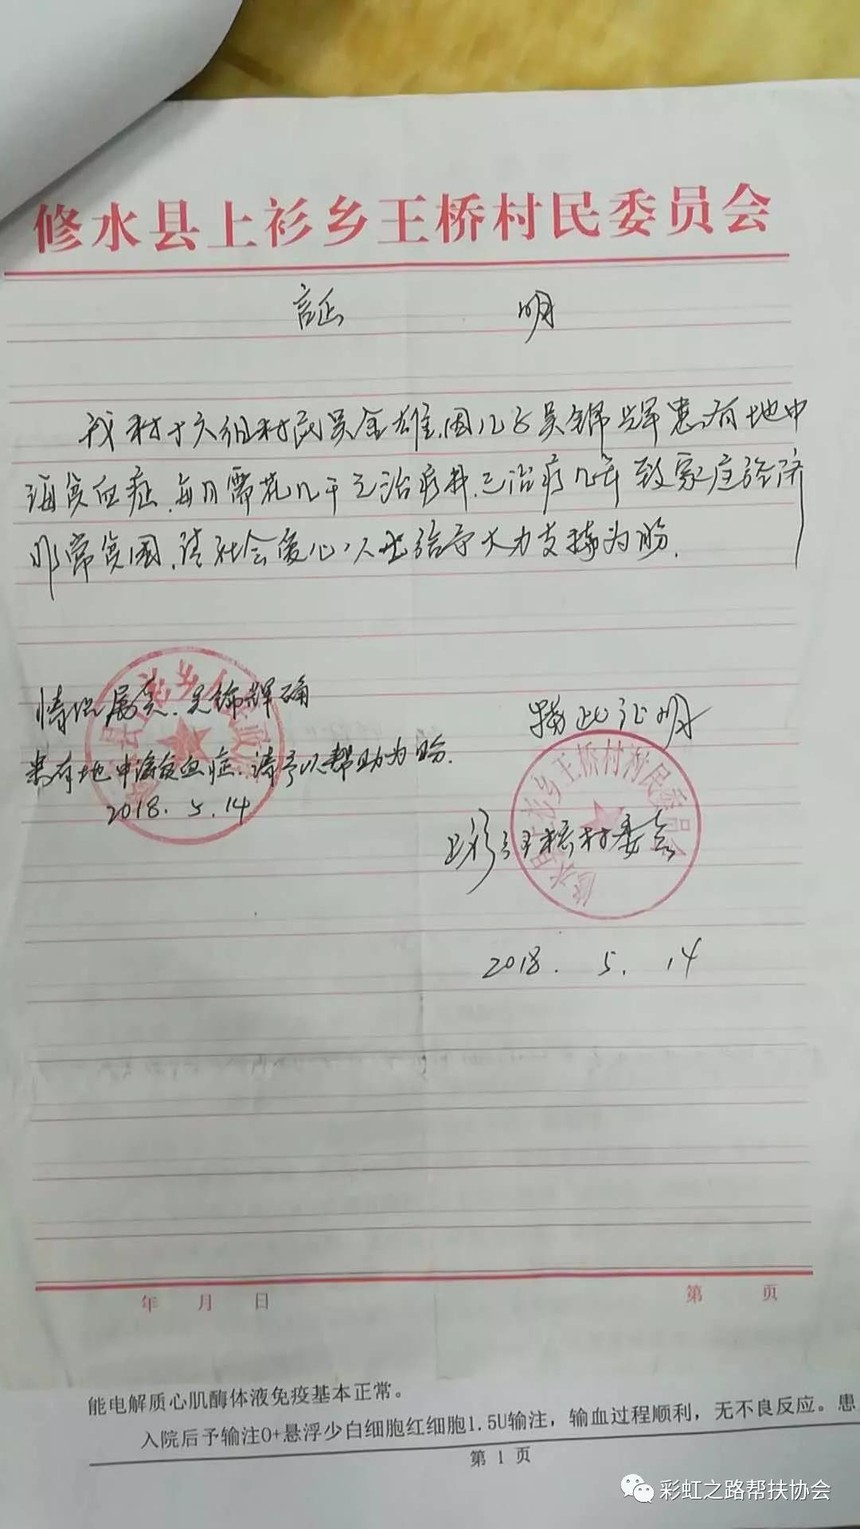 修水县上衫乡王桥村民委员会
証 明
我村十六组村民吴金雄,因儿子吴锦辉患有地中
海贫血症,每月需花几千元治疗费,已治疗几年致家庭经济
非常贫困,请社会爱心人士给予大力支持为盼.
情况属实.吴锦辉确
患有地中海贫血症.请予以帮助为盼.
2018.5.14
特此证明
修水县上衫乡王桥村村民委员会
上衫乡王桥村委会
2018.5.14
年 月 日
第 页
能电解质心肌酶体液免疫基本正常。
入院后予输注O+悬浮少白细胞红细胞1.5U输注,输血过程顺利,无不良反应。患
第 1 页
彩虹之路帮扶协会